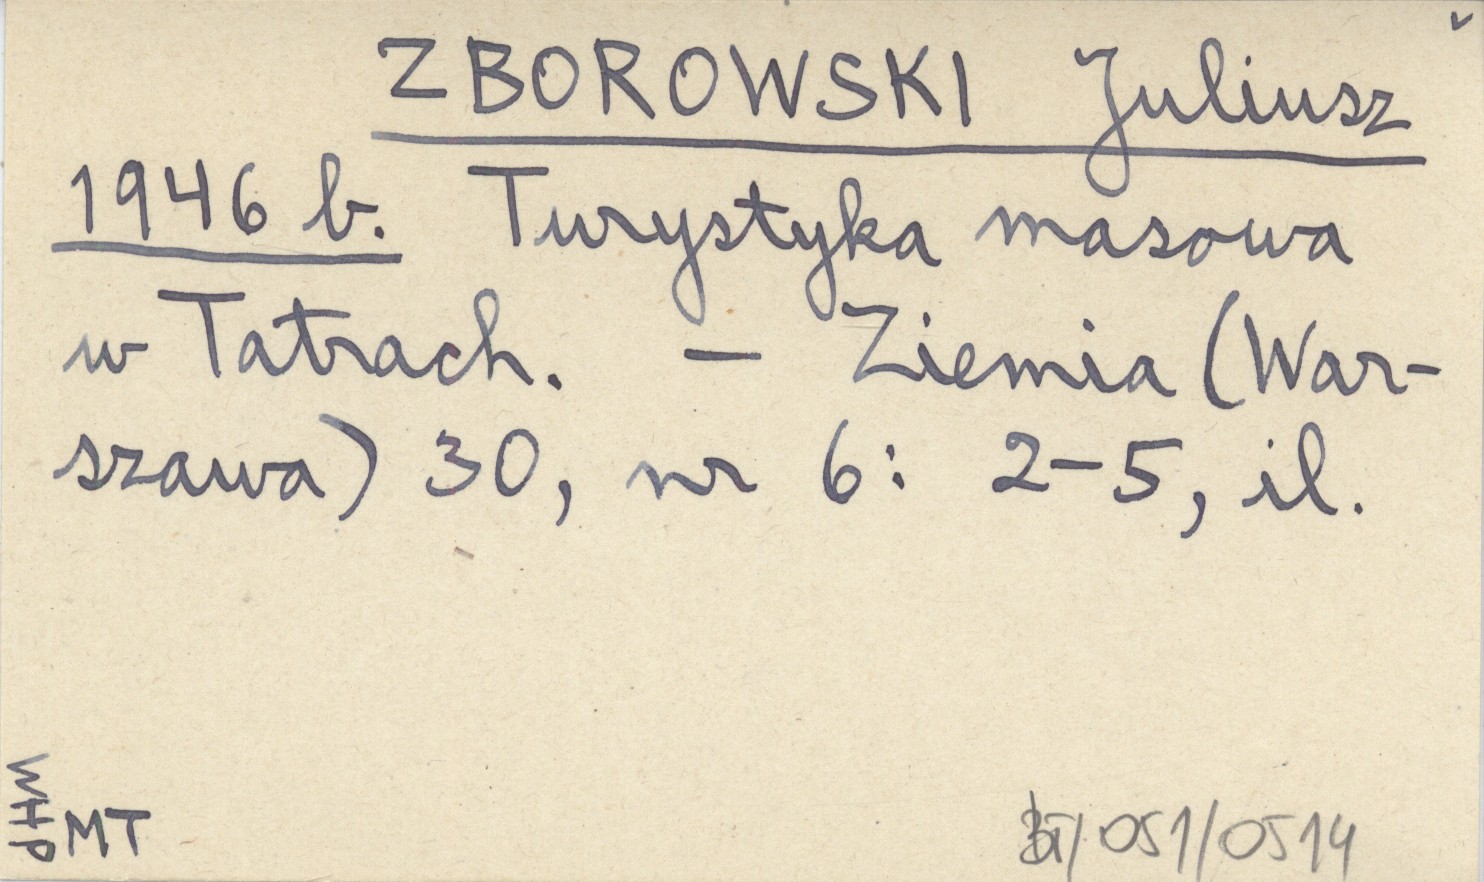 ZBOROWSKI Juliusz
1946 b. Turystyka masowa
w Tatrach. — Ziemia (War-
szawa) 30, nr 6: 2-5, il.
WHP
MT
BT/051/0514